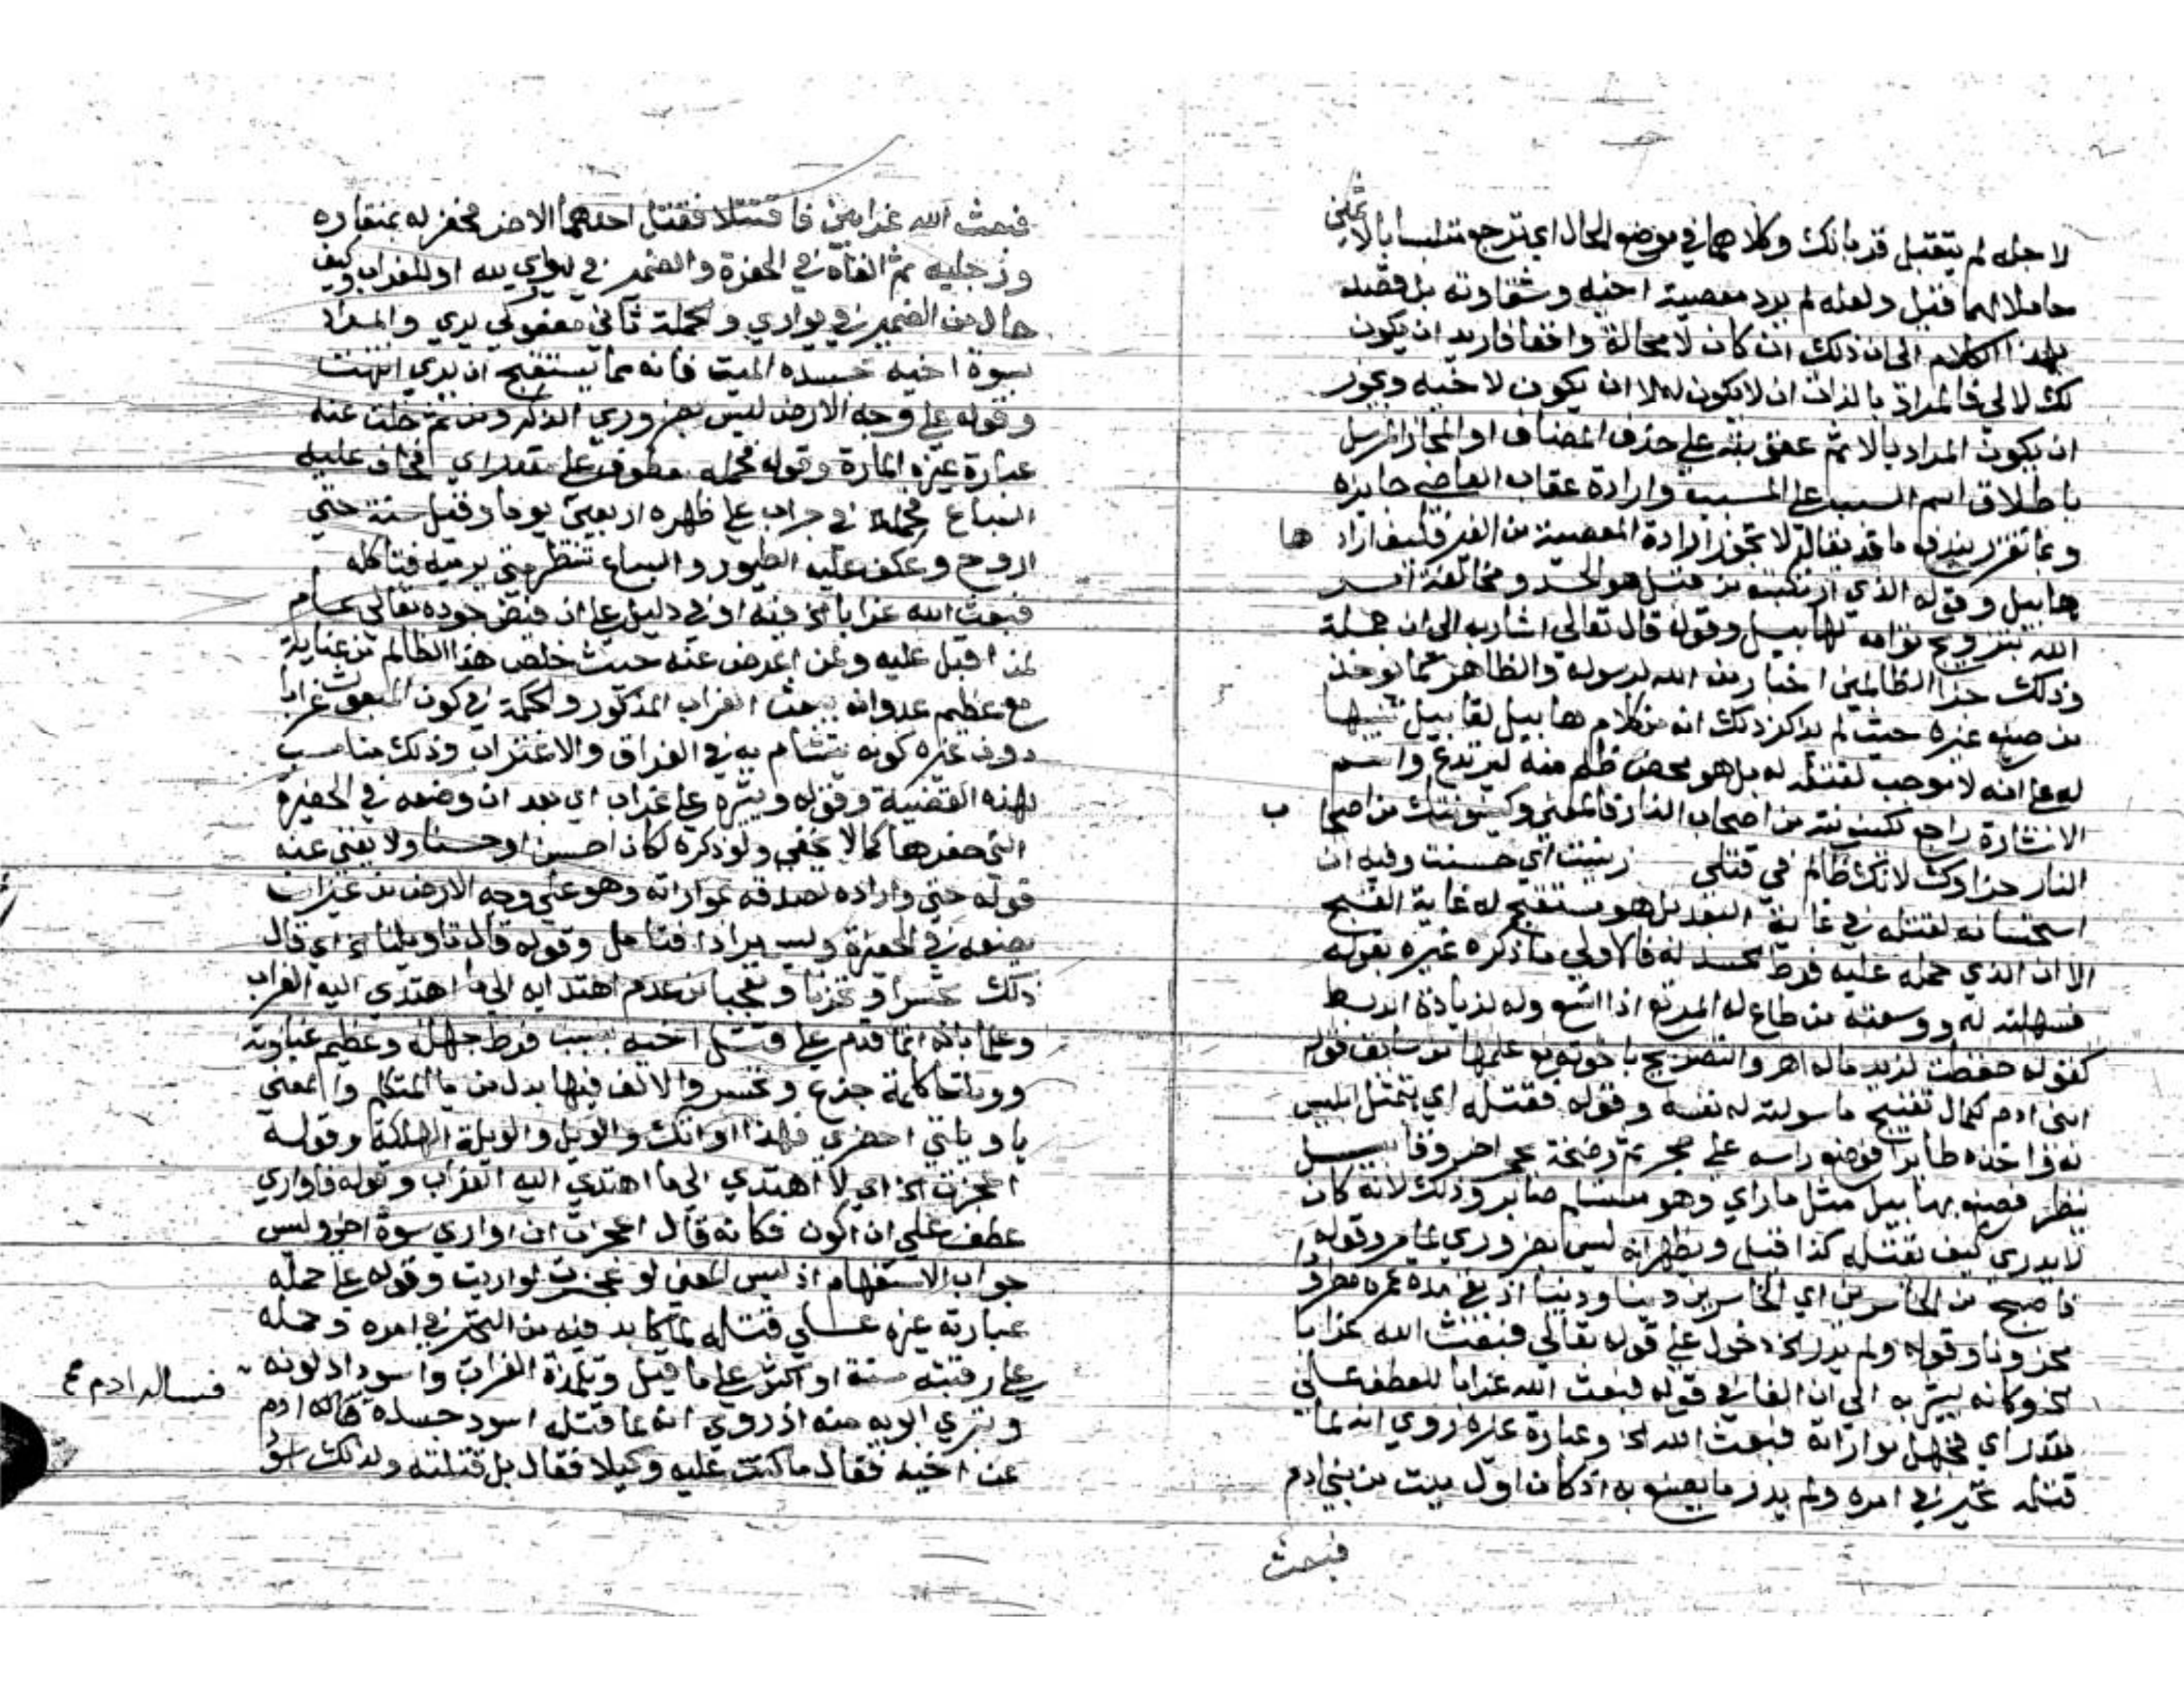 لاجله لم يتقبل قربانك وكلاهما في موضع الحال اي ترجع متلبسا بالاثمين
حاملا لهما فقيل ولعله لم يرد معصية اخيه وشقاوته بل قصده
بهذا الكلام الى ان ذلك ان كان لا محالة واقعا فاريد ان يكون
لك لا لي فالمراد بالذات ان لا يكون له لا ان يكون لاخيه ويجوز
ان يكون المراد بالاثم عقوبته على حذف المضاف او المجاز المرسل
باطلاق اسم السبب على المسبب وارادة عقاب العاصي جايزه
وبما تقرر يندفع ما قد يقال لا تجوز ارادة المعصية من الغير فكيف ارادها
هابيل وقوله الذي ارتكبته من قتل هو الحسد ومخالفة امر
الله بتزويج توامه لهابيل وقوله قال تعالى اشار به الى ان جملة
وذلك جزا الظالمين اخبار من الله لرسوله والظاهر كما يوخذ
من صنيع غيره حيث لم يذكر ذلك انه من كلام هابيل لقابيل تنبيها
له على انه لا موجب لقتله له بل هو محض ظلم منه ليرتدع واسم
الاشارة راجع لكينونته من اصحاب النار فالمعنى وكينونتك من اصحاب
النار جزاوك لانك ظالم في قتلي زينت اي حسنت وفيه ان
استحسانه لقتله في غاية البعد بل هو مستقبح له غاية القبح
الا ان الذي حمله عليه فرط الحسد له فالاولى ما ذكره غيره بقوله
فسهلته له ووسعته من طاع له المرتع اذا اتسع وله لزيادة الربط
كقوله حفظت لزيد ماله اهر والتصريح باخوته مع علمها من سابق قوله
ابني ادم كمال تقبيح ما سولته له نفسه وقوله فقتله اي بتمثل ابليس
له واخذه طايرا فوضع راسه على حجر ثم رضخه بحجر اخر وقابيل
ينظر فصنع بهابيل مثل ما راي وهو مستسلم صابر وذلك لانه كان
لا يدري كيف يقتله كذا قيل ويظهر انه ليس بضروري تامر وقوله
فاصبح من الخاسرين اي الخاسرين دينا ودنيا اذ بقي مدة عمره مطرودا
محزونا وقوله ولم يدر الخ دخول على قوله تعالى فبعث الله غرابا
الخ وكانه يشير به الى ان الفا في قوله فبعث الله غرابا للعطف على
مقدر اي فجهل مواراته فبعث الله الخ وعبارة غيره روي انه لما
قتله تحير في امره ولم يدر ما يصنع به اذ كان اول ميت من بني ادم
فبعث
فبعث الله غرابين فاقتتلا فقتل احدهما الاخر فحفر له بمنقاره
ورجليه ثم القاه في الحفرة والضمير في ليواري لله او للغراب وكيف
حال من الضمير في يواري والجملة ثاني مفعولي يري والمراد
بسوة اخيه جسده الميت فانه مما يستقبح ان يري انتهت
وقوله على وجه الارض ليس بضروري الذكر ومن ثم خلت عنه
عبارة غيره المارة وقوله فحمله معطوف على مقدر اي فخاف عليه
السباع فحمله في جراب على ظهره اربعين يوما وقيل سنة حتي
اروح وعكف عليه الطيور والسباع تنتظر متي يرميه فتاكله
فبعث الله غرابا الخ فيه اوفي دليل على ان فيض جوده تعالى عام
لمن اقبل عليه ولمن اعرض عنه حيث خلص هذا الظالم من عنايه
مع عظيم عدوانه ببعث الغراب المذكور والحكمة في كون المبعوث غرابا
دون غيره كونه يتشام به في الفراق والاغتراب وذلك مناسب
لهذه القضية وقوله ويثيره على غراب اي بعد ان وضعه في الحفيرة
التي حفرها كما لا يخفي ولو ذكره لكان احسن او حسنا ولا يغني عنه
قوله حتي واراده لصدقه بمواراته وهو على وجه الارض من غير ان
يضعه في الحفرة وليس مرادا فتامل وقوله قال ياويلتا الخ اي قال
ذلك تحسرا وتحزنا وتعجبا من عدم اهتدايه الى ما اهتدي اليه الغراب
وعلما بانه انما قدم على قتل اخيه بسبب فرط جهله وعظيم غباوته
وويلتا كلمة جزع وتحسر والالف فيها بدل من يا المتكلم والمعنى
يا ويلتي احضري فهذا اوانك والويل والويلة الهلكة وقوله
اعجزت الخ اي لا اهتدي الى ما اهتدي اليه الغراب وقوله فاواري
عطف على ان اكون فكانه قال اعجزت ان اواري سوة اخي وليس
جواب الاستفهام اذ ليس المعنى لو عجزت لواريت وقوله على حمله
عبارة غيره على قتله لما كابد فيه من التحير في امره وحمله
على رقبته سنة او اكثر على ما قيل وتلمذة الغراب واسوداد لونه
وتبري ابويه منه اذ روي انه لما قتله اسود جسده قاله ادم
عن اخيه فقال ما كنت عليه وكيلا فقال بل قتلته ولذلك اسود
فساله ادم صح